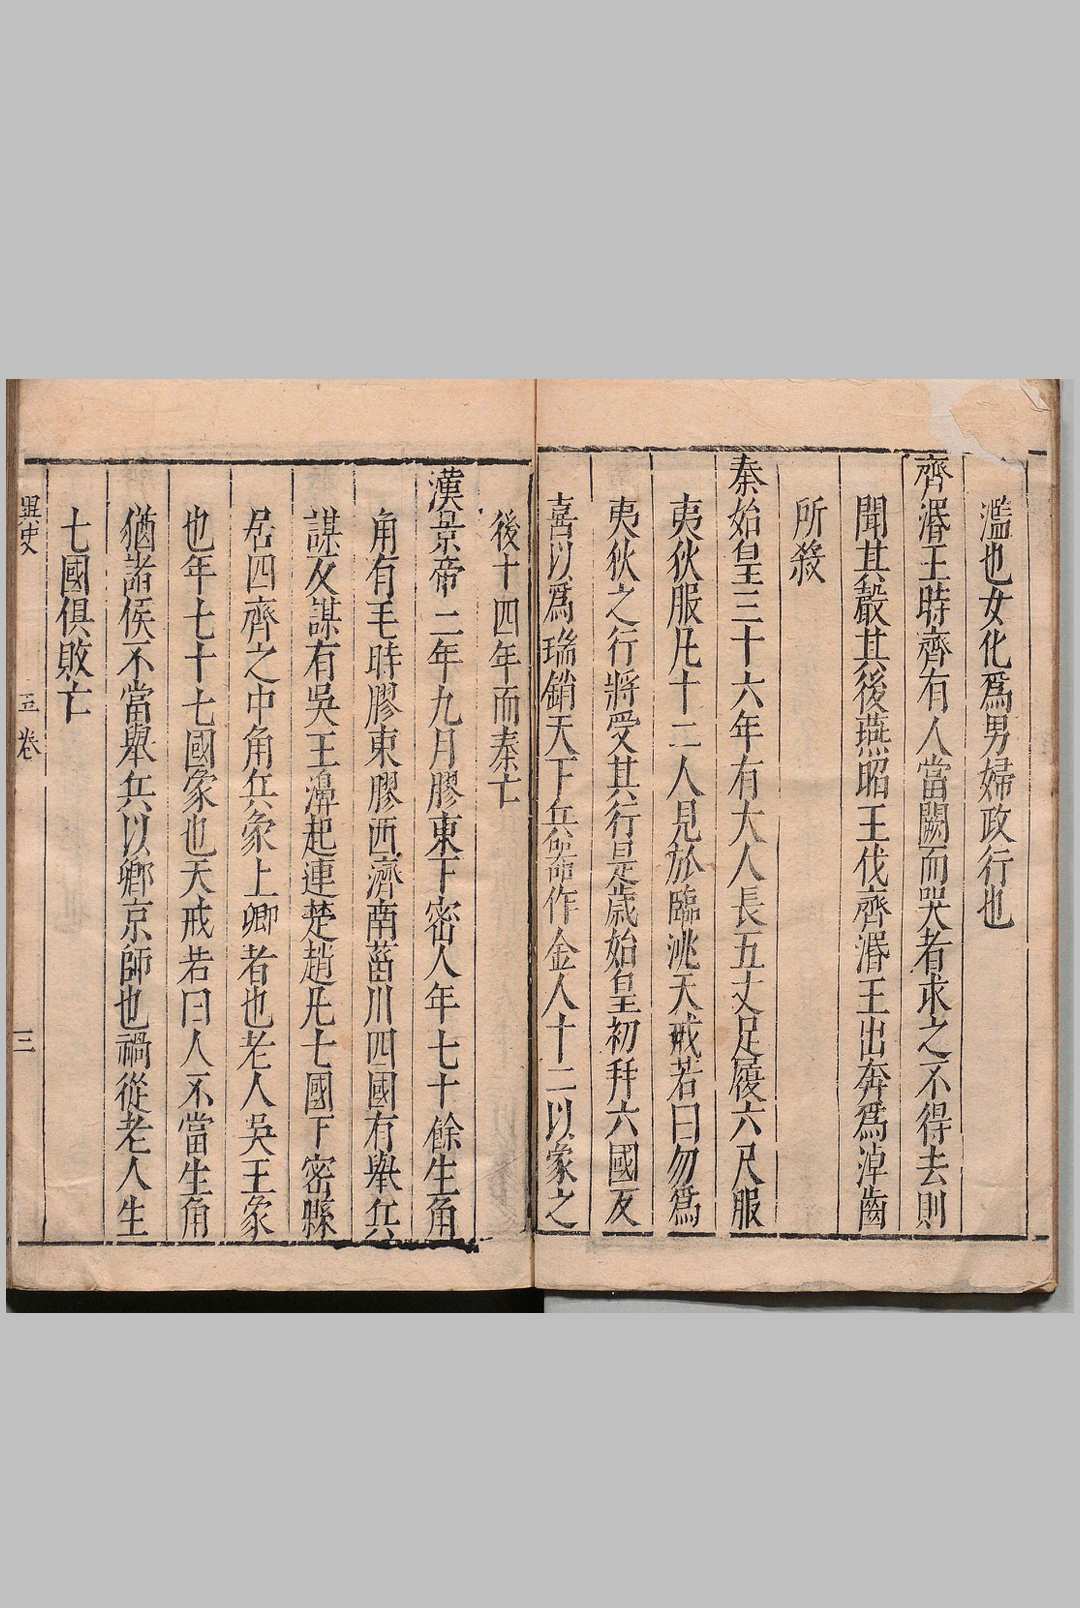 濫也女化爲男婦政行也
齊湣王時齊有人當闕而哭者求之不得去則
聞其聲其後燕昭王伐齊湣王出奔爲淖齒
所殺
秦始皇三十六年有大人長五丈足履六尺服
夷狄服凡十二人見於臨洮天戒若曰勿爲
夷狄之行將受其行是歲始皇初幷六國反
喜以爲瑞銷天下兵器作金人十二以象之
後十四年而秦亡
漢景帝二年九月膠東下密人年七十餘生角
角有毛時膠東膠西濟南菑川四國有舉兵
謀反謀有吳王濞起連楚趙凡七國下密縣
居四齊之中角兵象上卿者也老人吳王象
也年七十七國象也天戒若曰人不當生角
猶諸侯不當舉兵以鄉京師也禍從老人生
七國俱敗亡
五卷
三